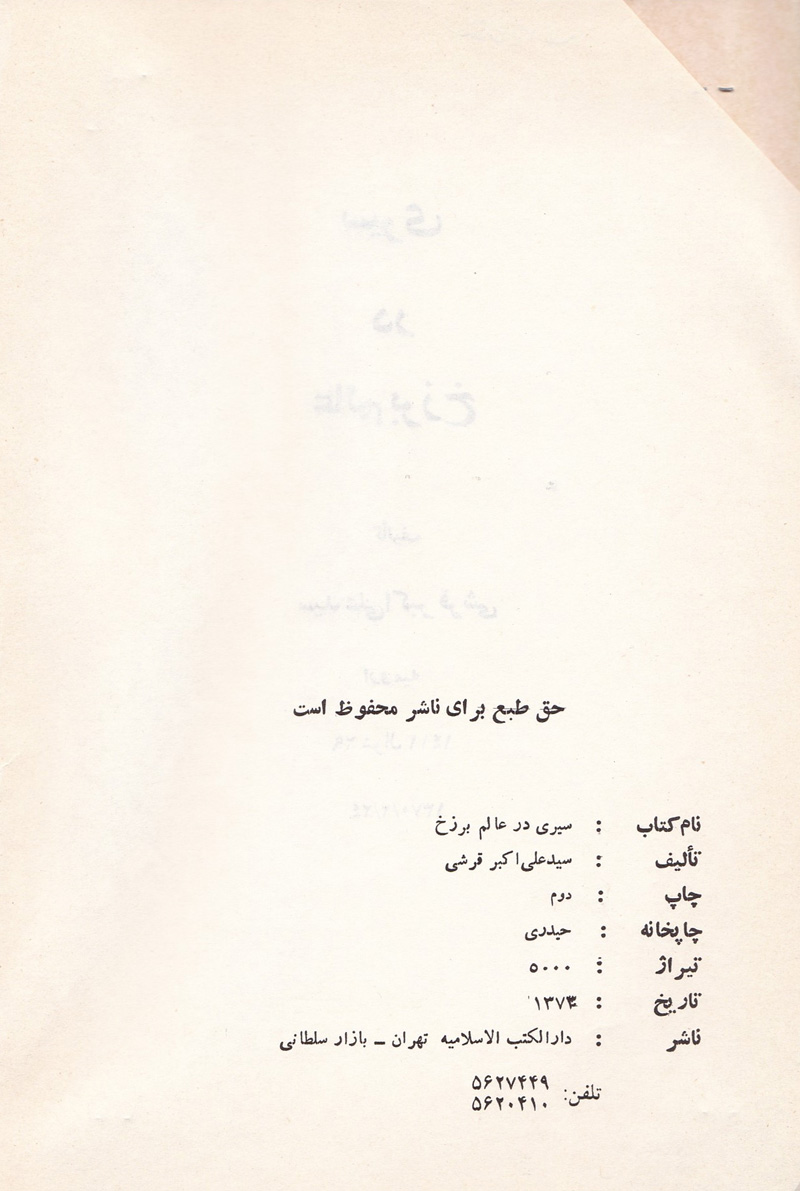 حق طبع برای ناشر محفوظ است
نام کتاب : سیری در عالم برزخ
تألیف : سیدعلی‌اکبر قرشی
چاپ : دوم
چاپخانه : حیدری
تیراژ : ۵۰۰۰
تاریخ :
ناشر : دارالکتب الاسلامیه تهران ــ بازار سلطانی
تلفن: ۵۶۲۷۴۴۹
۵۶۲۰۴۱۰